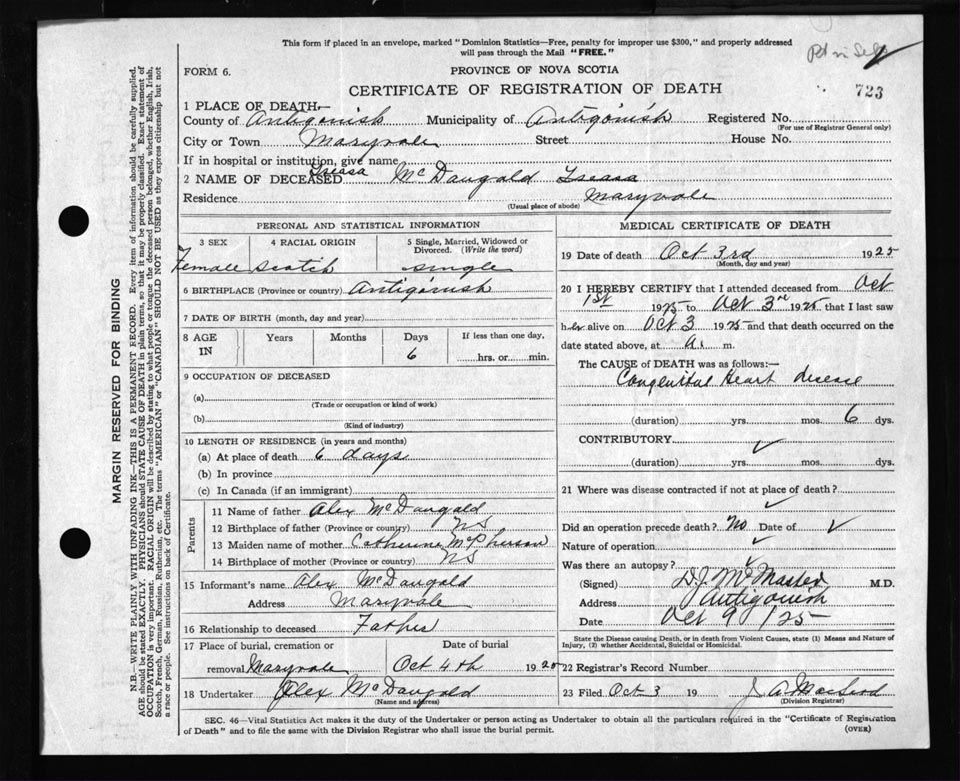 This form if placed in an envelope, marked "Dominion Statistics—Free, penalty for improper use $300," and properly addressed
will pass through the Mail "FREE."
FORM 6.
PROVINCE OF NOVA SCOTIA
CERTIFICATE OF REGISTRATION OF DEATH
723
1 PLACE OF DEATH—
County of Antigonish Municipality of Antigonish Registered No.
(For use of Registrar General only)
City or Town Maryvale Street House No.
If in hospital or institution, give name
2 NAME OF DECEASED McDaugald
Residence Maryvale
(Usual place of abode)
PERSONAL AND STATISTICAL INFORMATION
3 SEX 4 RACIAL ORIGIN 5 Single, Married, Widowed or Divorced. (Write the word)
Female Scotch single
6 BIRTHPLACE (Province or country) Antigonish
7 DATE OF BIRTH (month, day and year)
8 AGE IN Years Months Days If less than one day,
6 hrs. or min.
9 OCCUPATION OF DECEASED
(a)
(Trade or occupation or kind of work)
(b)
(Kind of industry)
10 LENGTH OF RESIDENCE (in years and months)
(a) At place of death 6 days
(b) In province
(c) In Canada (if an immigrant)
Parents
11 Name of father Alex McDaugald
12 Birthplace of father (Province or country) NS
13 Maiden name of mother Catherine McPherson
14 Birthplace of mother (Province or country) NS
15 Informant's name Alex McDaugald
Address Maryvale
16 Relationship to deceased Father
17 Place of burial, cremation or Date of burial
removal Maryvale Oct 4th 1925
18 Undertaker Alex McDaugald
(Name and address)
MEDICAL CERTIFICATE OF DEATH
19 Date of death Oct 3rd 1925
(Month, day and year)
20 I HEREBY CERTIFY that I attended deceased from Oct
1st 1925 to Oct 3rd 1925 that I last saw
her alive on Oct 3 1925 and that death occurred on the
date stated above, at a. m.
The CAUSE OF DEATH was as follows:—
Congenital Heart disease
(duration) yrs. mos. 6 dys.
CONTRIBUTORY
(duration) yrs. mos. dys.
21 Where was disease contracted if not at place of death?
Did an operation precede death? No Date of
Nature of operation
Was there an autopsy?
(Signed) D.J. McMaster M.D.
Address Antigonish
Date Oct 9/25
State the Disease causing Death, or in death from Violent Causes, state (1) Means and Nature of Injury, (2) whether Accidental, Suicidal or Homicidal.
22 Registrar's Record Number
23 Filed Oct 3 19
(Division Registrar)
SEC. 46—Vital Statistics Act makes it the duty of the Undertaker or person acting as Undertaker to obtain all the particulars required in the "Certificate of Registration
of Death" and to file the same with the Division Registrar who shall issue the burial permit.
(OVER)
MARGIN RESERVED FOR BINDING
N.B.—WRITE PLAINLY WITH UNFADING INK—THIS IS A PERMANENT RECORD. Every item of information should be carefully supplied.
AGE should be stated EXACTLY. PHYSICIANS should STATE CAUSE OF DEATH in plain terms, so that it may be properly classified. Exact statement of
OCCUPATION is very important. RACIAL ORIGIN will be described by stating to what people or tongue the deceased person belonged, whether English, Irish,
Scotch, French, German, Russian, Ruthenian, etc. The terms "AMERICAN" or "CANADIAN" SHOULD NOT BE USED as they express citizenship but not
a race or people. See instructions on back of Certificate.